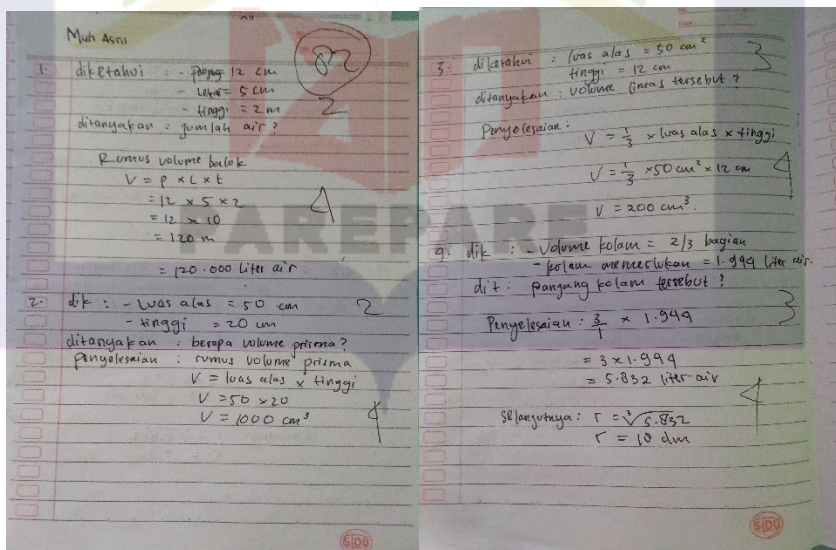 Muh Asni
82
1. diketahui : - panjang 12 cm
- lebar = 5 cm
- tinggi = 2 m
2
ditanyakan : jumlah air ?
Rumus volume balok
V = P x L x t
= 12 x 5 x 2
= 12 x 10
= 120 m
4
= 120.000 liter air.
2. dik : - luas alas = 50 cm
2
- tinggi = 20 cm
ditanyakan : berapa volume prisma?
penyelesaian : rumus volume prisma
V = luas alas x tinggi
V = 50 x 20
V = 1000 cm³
4
SIDU
3. diketahui : luas alas = 50 cm²
3
tinggi = 12 cm
ditanyakan : volume limas tersebut ?
Penyelesaian :
V = 1/3 x luas alas x tinggi
V = 1/3 x 50 cm² x 12 cm
4
V = 200 cm³.
dik : - volume kolam = 2/3 bagian
- kolam memerlukan = 1.944 liter air.
dit : panjang kolam tersebut ?
3
Penyelesaian : 3/1 x 1.944
= 3 x 1.944
= 5.832 liter air
4
Selanjutnya : r = ³√5.832
r = 18 dm
SIDU
PAREPARE